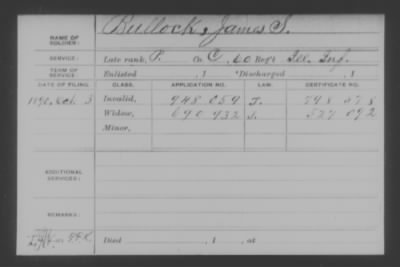 NAME OF SOLDIER: Bullock, James S.
SERVICE: Late rank, P. Co C, 60 Reg't Ill. Inf.
TERM OF SERVICE: Enlisted , 1 Discharged , 1
DATE OF FILING. CLASS. APPLICATION NO. LAW. CERTIFICATE NO.
1890, Oct. 3 Invalid, 948 059 J. 798 078
Widow, 690 932 J. 527 092
Minor,
ADDITIONAL SERVICES:
REMARKS:
Died , 1 , at